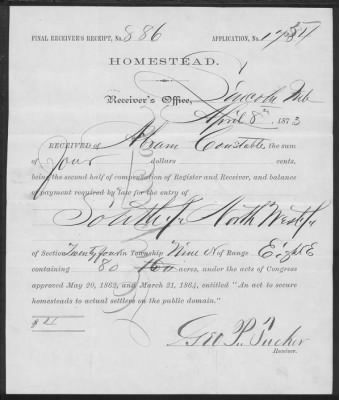 FINAL RECEIVER'S RECEIPT, No. 886 APPLICATION, No.
HOMESTEAD.
Receiver's Office, Lincoln Neb
April 8th 1873
RECEIVED OF Abram Constable the sum
of four dollars cents,
being the second half of compensation of Register and Receiver, and balance
of payment required by law for the entry of
South ½ North West ¼
of Section Twenty four in Township Nine N of Range Eight E
containing 80 acres, under the acts of Congress
approved May 20, 1862, and March 21, 1864, entitled "An act to secure
homesteads to actual settlers on the public domain."
$ 4
Geo P. Tucker
Receiver.